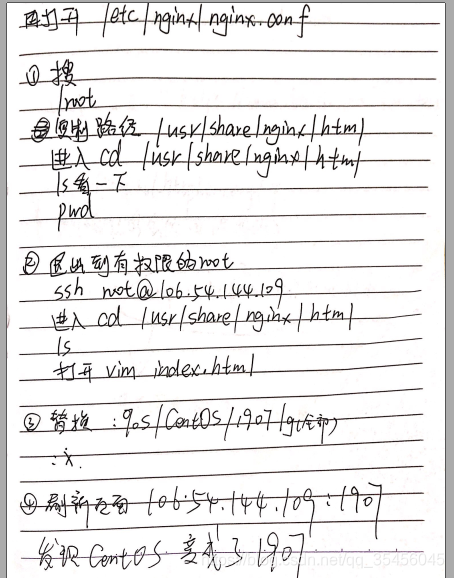 再打开 /etc/nginx/nginx.conf
① 搜
/root
复制路径 /usr/share/nginx/html
进入 cd /usr/share/nginx/html
ls 看一下
pwd
② 退出到有权限的root
ssh root@106.54.144.109
进入 cd /usr/share/nginx/html
ls
打开 vim index.html
③ 替换 :%s/CentOS/1907/g(全部)
:x.
④ 刷新页面 106.54.144.109:1907
发现 CentOS 变成了 1907
https://blog.csdn.net/qq_35456045